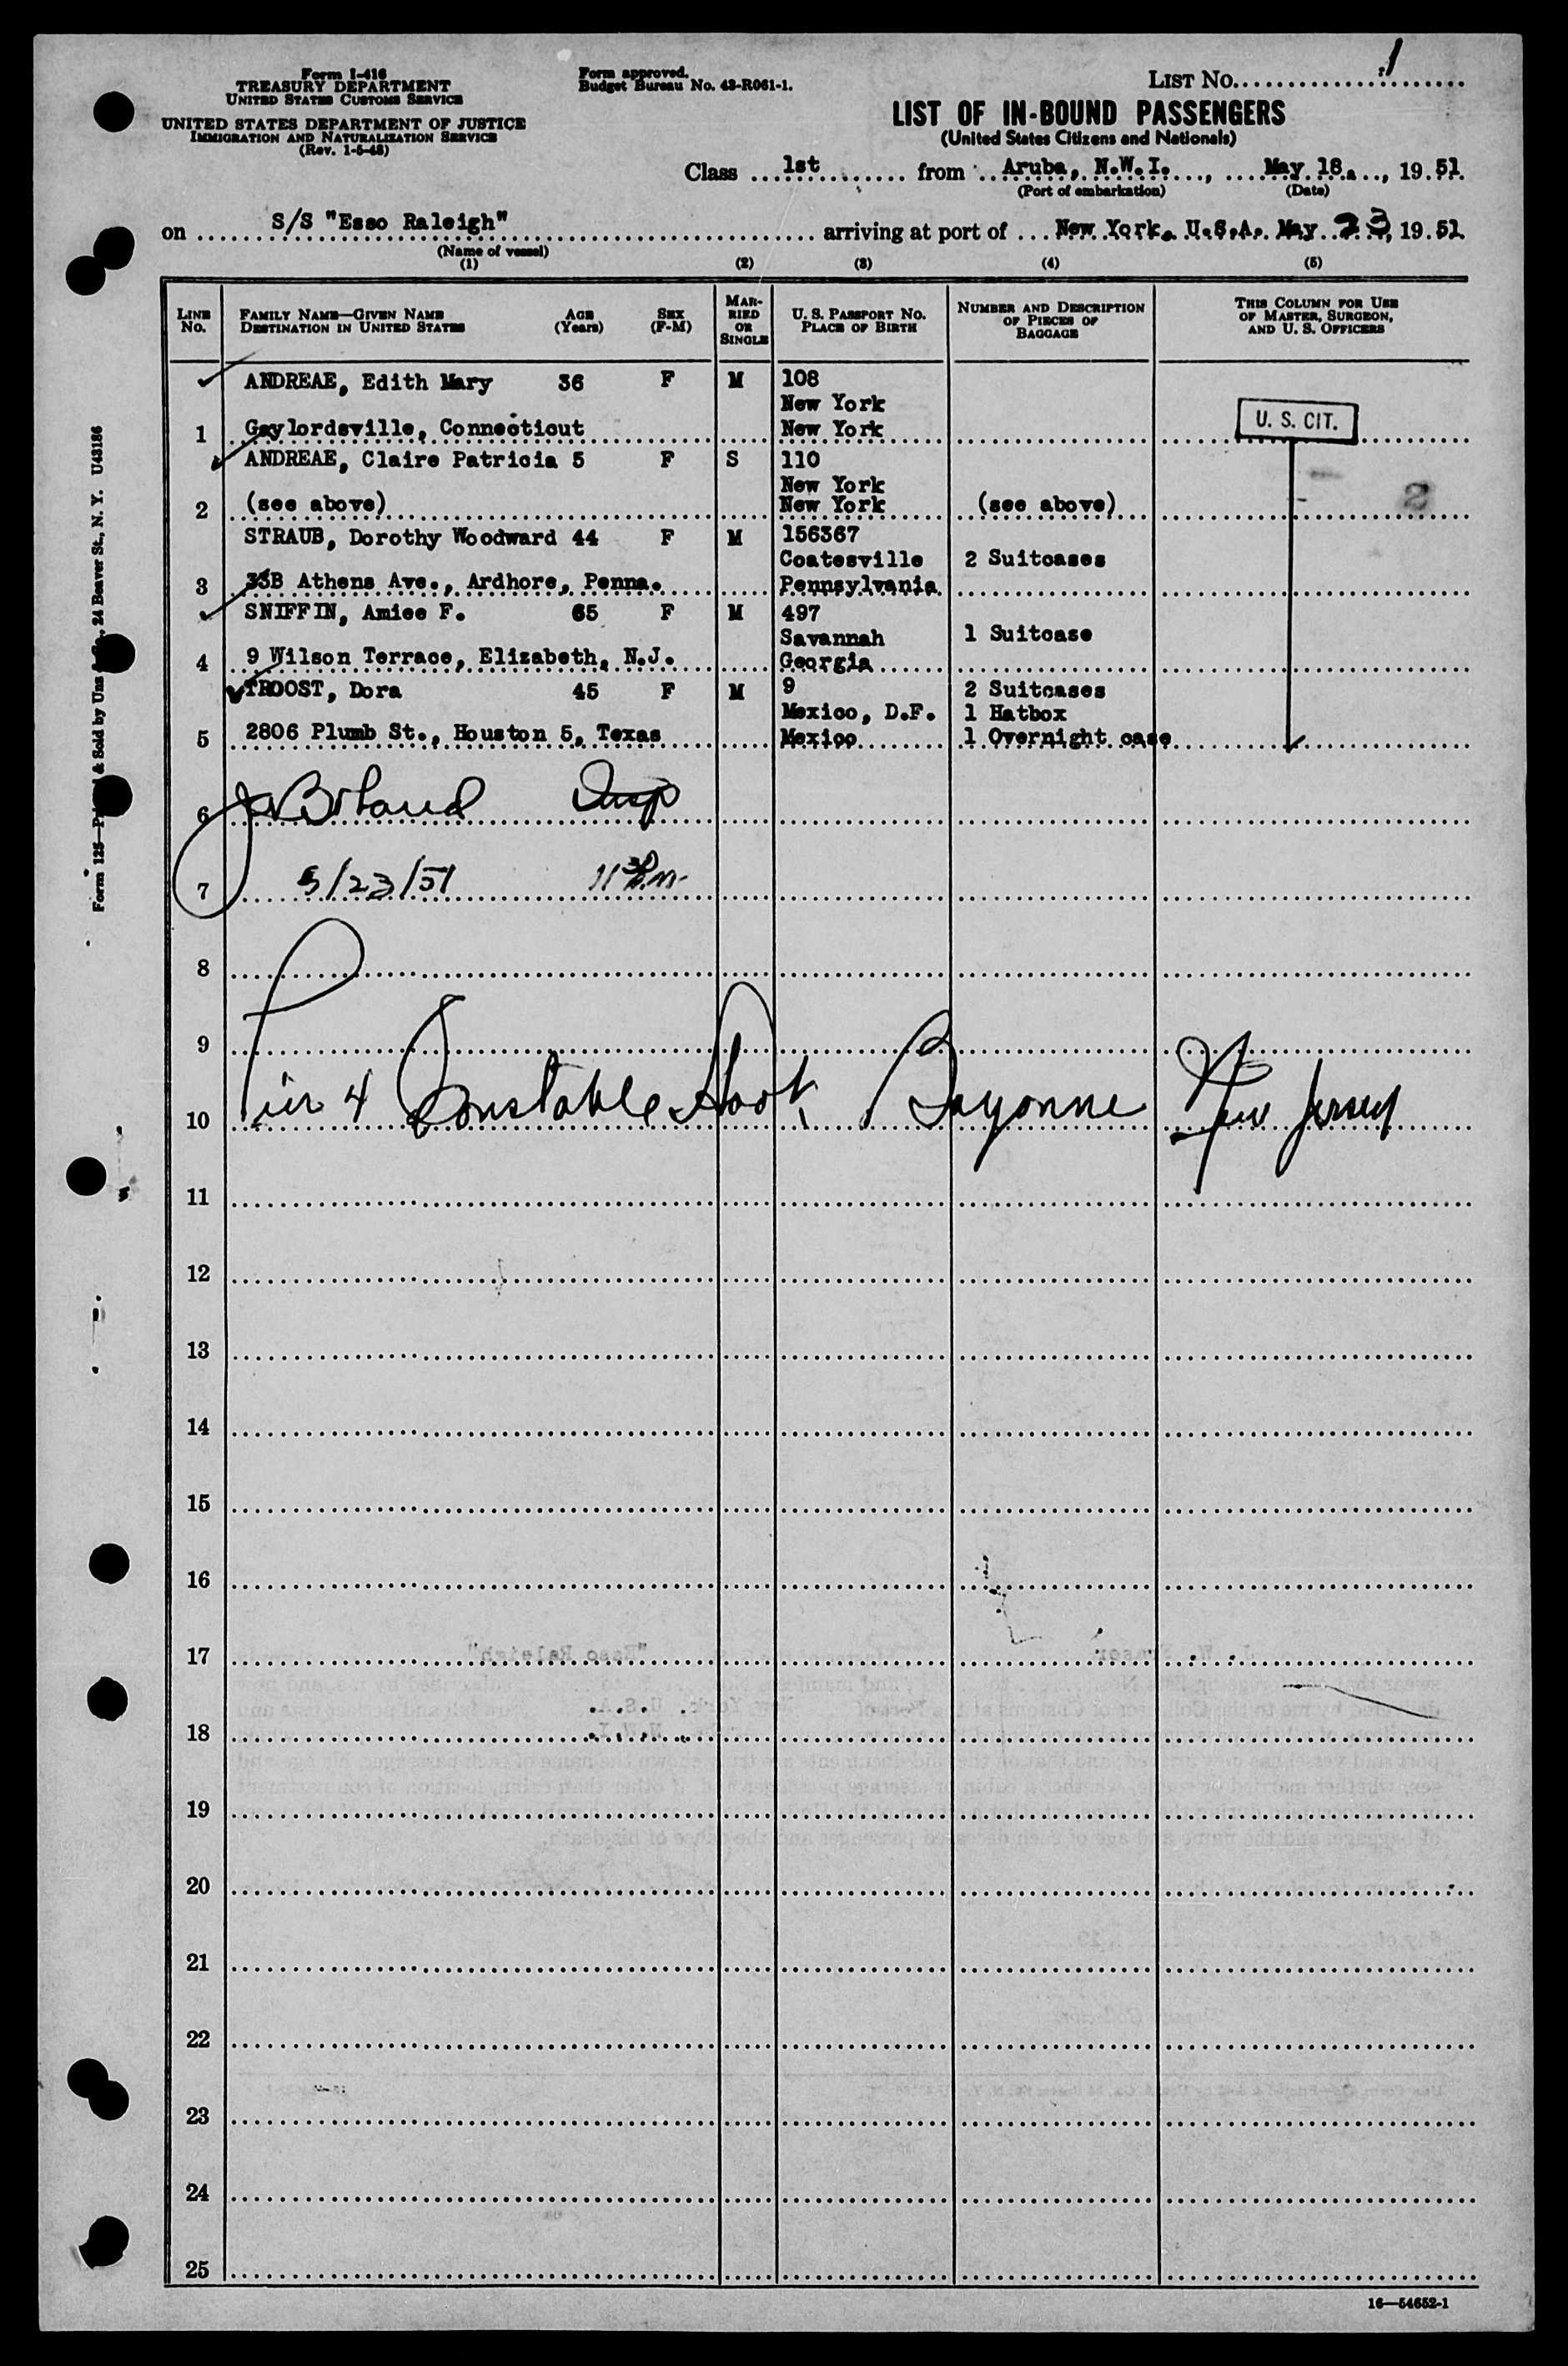 Form I-416
TREASURY DEPARTMENT
UNITED STATES CUSTOMS SERVICE
UNITED STATES DEPARTMENT OF JUSTICE
IMMIGRATION AND NATURALIZATION SERVICE
(Rev. 1-5-48)
Form approved.
Budget Bureau No. 43-R061-1.
LIST NO. 1
LIST OF IN-BOUND PASSENGERS
(United States Citizens and Nationals)
Class 1st from Aruba, N.W.I., May 18, 19 51
(Port of embarkation) (Date)
on S/S "Esso Raleigh" arriving at port of New York, U.S.A. May 23, 19 51
(Name of vessel)
(1) (2) (3) (4) (5)
LINE NO. FAMILY NAME—GIVEN NAME DESTINATION IN UNITED STATES AGE (Years) SEX (F-M) MARRIED OR SINGLE U. S. PASSPORT NO. PLACE OF BIRTH NUMBER AND DESCRIPTION OF PIECES OF BAGGAGE THIS COLUMN FOR USE OF MASTER, SURGEON, AND U. S. OFFICERS
ANDREAE, Edith Mary 36 F M 108
New York
1 Gaylordsville, Connecticut New York
U. S. CIT.
ANDREAE, Claire Patricia 5 F S 110
New York
2 (see above) New York (see above) 2
STRAUB, Dorothy Woodward 44 F M 156367
Coatesville 2 Suitcases
3 33B Athens Ave., Ardhore, Penna. Pennsylvania
SNIFFIN, Amiee F. 65 F M 497
Savannah 1 Suitcase
4 9 Wilson Terrace, Elizabeth, N.J. Georgia
TROOST, Dora 45 F M 9 2 Suitcases
Mexico, D.F. 1 Hatbox
5 2806 Plumb St., Houston 5, Texas Mexico 1 Overnight case
6 Insp
7 5/23/51 11 30 Pm
8
9
10 Pier 4 Constable Hook Bayonne New Jersey
11
12
13
14
15
16
17
18
19
20
21
22
23
24
25
16—54652-1